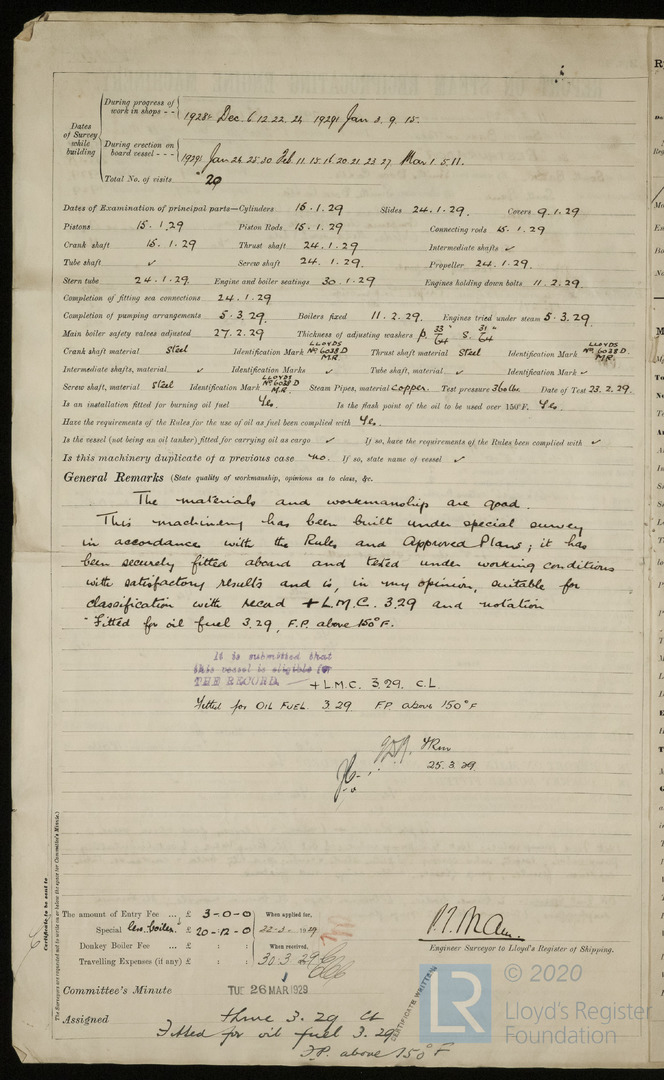 During progress of work in shops - - 1928: Dec. 6. 12. 22. 24. 1929: Jan 3. 9. 15.
Dates of Survey while building
During erection on board vessel - - - 1929: Jan 24. 25. 30. Feb. 11. 15. 16. 20. 21. 23. 27. Mar 1. 5. 11.
Total No. of visits 20
Dates of Examination of principal parts—Cylinders 15.1.29 Slides 24.1.29. Covers 9.1.29
Pistons 15.1.29 Piston Rods 15.1.29 Connecting rods 15.1.29
Crank shaft 15.1.29 Thrust shaft 24.1.29 Intermediate shafts ✓
Tube shaft ✓ Screw shaft 24.1.29. Propeller 24.1.29.
Stern tube 24.1.29. Engine and boiler seatings 30.1.29 Engines holding down bolts 11.2.29.
Completion of fitting sea connections 24.1.29
Completion of pumping arrangements 5.3.29. Boilers fixed 11.2.29. Engines tried under steam 5.3.29.
Main boiler safety valves adjusted 27.2.29 Thickness of adjusting washers P. 33/64" S. 31/64"
Crank shaft material Steel Identification Mark LLOYDS Nº 6038 D M.R. Thrust shaft material Steel Identification Mark LLOYDS Nº 6038 D. M.R.
Intermediate shafts, material ✓ Identification Marks ✓ Tube shaft, material ✓ Identification Mark ✓
Screw shaft, material Steel Identification Mark LLOYDS Nº 6038 D M.R. Steam Pipes, material Copper. Test pressure 360 lbs. Date of Test 23.2.29.
Is an installation fitted for burning oil fuel Yes. Is the flash point of the oil to be used over 150°F. Yes.
Have the requirements of the Rules for the use of oil as fuel been complied with Yes.
Is the vessel (not being an oil tanker) fitted for carrying oil as cargo ✓ If so, have the requirements of the Rules been complied with ✓
Is this machinery duplicate of a previous case no. If so, state name of vessel ✓
General Remarks (State quality of workmanship, opinions as to class, &c.
The materials and workmanship are good.
This machinery has been built under special survey
in accordance with the Rules and Approved Plans; it has
been securely fitted aboard and tested under working conditions
with satisfactory results and is, in my opinion, suitable for
classification with record + L.M.C. 3.29 and notation
"Fitted for oil fuel 3.29, F.P. above 150°F.
It is submitted that
this vessel is eligible for
THE RECORD. + L.M.C. 3.29. C.L.
Fitted for OIL FUEL. 3.29 F.P. above 150°F
25.3.29
Certificate to be sent to
The Surveyors are requested not to write on or below the space for Committee's Minute.
The amount of Entry Fee ... £ 3-0-0 When applied for,
Special less boiler. £ 20-12-0 22-3-1929
Donkey Boiler Fee ... £ : : When received,
Travelling Expenses (if any) £ : : 30.3.29
Engineer Surveyor to Lloyd's Register of Shipping.
Committee's Minute TUE 26 MAR 1929
Assigned + Lmc 3.29 CL
Fitted for oil fuel 3.29
F.P. above 150°F
CERTIFICATE WRITTEN
LR © 2020
Lloyd's Register
Foundation